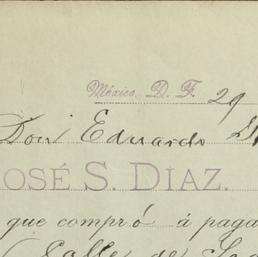 México, D. F. 29
Don Eduardo
JOSÉ S. DIAZ.
que compró á paga
Calle de